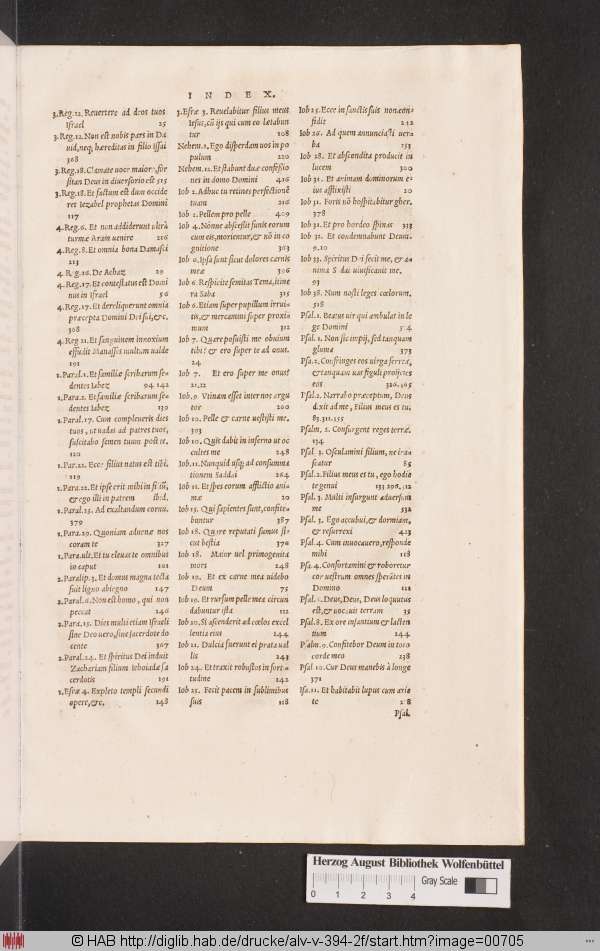 INDEX.
3.Reg.12. Revertere ad deos tuos
Israel 25
3.Reg.12. Non est nobis pars in Da
uid,neq; hæreditas in filio Isai
368
3.Reg.18. Clamate uoce maiori,for
sitan Deus in diuersorio est 515
3.Reg.18. Et factum est dum occide
ret Iezabel prophetas Domini
117
4.Reg.6. Et non addiderunt ultrà
turmæ Aram uenire 216
4.Reg.8. Et omnia bona Damasci
223
4.Reg.16. De Achaz 29
4.Reg.17. Et contestatus est Domi
nus in Israel 56
4.Reg.17. Et dereliquerunt omnia
præcepta Domini Dei sui,&c.
308
4.Reg 21. Et sanguinem innoxium
effudit Manasses multum ualde
191
1.Paral.1. Et familiæ scribarum se
dentes Iabez 94 142
1.Para.2. Et familiæ scribarum se
dentes Iabez 139
1.Paral.17. Cum compleueris dies
tuos, ut uadas ad patres tuos,
suscitabo semen tuum post te.
120
1.Par.22. Ecce filius natus est tibi.
219
1.Para.22. Et ipse erit mihi in filiũ,
& ego illi in patrem ibid.
1.Paral.25. Ad exaltandum cornu.
379
1.Para.29. Quoniam aduenæ nos
coram te 327
1.Para.ult. Et tu eleuaste omnibus
in caput 101
2.Paralip.3. Et domus magna tecta
fuit ligno abiegno 147
2.Paral.6. Non est homo, qui non
peccat 246
2.Para.15. Dies multi etiam Israeli
sine Deo uero,sine sacerdote do
cente 367
2.Paral.24. Et spiritus Dei induit
Zachariam filium Iehoiadæ sa
cerdotis 191
1.Esræ 4. Expleto templi secundi
opere,&c. 148
3.Esræ 3. Reuelabitur filius meus
Iesus,cũ ijs qui cum eo lætabun
tur 108
Nehem.1. Ego disperdam uos in po
pulum 220
Nehem.12. Et stabunt duæ confessio
nes in domo Domini 426
Iob 2. Adhuc tu retines perfectionẽ
tuam 216
Iob 2. Pellem pro pelle 409
Iob 4. Nonne abscessit funis eorum
cum eis,morientur,& nõ in co
gnitione 363
Iob 6. Ipsa sunt sicut dolores carnis
meæ 396
Iob 6. Respicite semitas Tema,itine
ra Saba 315
Iob 6. Etiam super pupillum irrui-
tis,& mercamini super proxi
mum 312
Iob 7. Quare posuisti me obuium
tibi? & ero super te ad onus.
24
Iob 7. Et ero super me onus?
21.22
Iob.9. Vtinam esset inter nos argu
tor 200
Iob 10. Pelle & carne uestisti me.
303
Iob 10. Quis dabit in inferno ut oc
cultes me 248
Iob.11. Nunquid usq; ad consumma
tionem Saddai 264
Iob 11. Et spes eorum afflictio ani-
mæ 20
Iob 15. Qui sapientes sunt,confite-
buntur 387
Iob 18. Quare reputati sumus si-
cut bestia 370
Iob 18. Maior uel primogenita
mors 248
Iob 19. Et ex carne mea uidebo
Deum 75
Iob 19. Et rursum pelle mea circun
dabuntur ista 112
Iob 20. Si ascenderit ad cœlos excel
lentia eius 244
Iob 21. Dulcia fuerunt ei prata ual
lis 243
Iob 24. Et traxit robustos in forti-
tudine 142
Iob 25. Fecit pacem in sublimibus
suis 118
Iob 25. Ecce in sanctis suis non con-
fidit 212
Iob 26. Ad quem annunciasti uer
ba 153
Iob 28. Et abscondita producit in
lucem 300
Iob 31. Et animam dominorum e-
ius afflixisti 20
Iob 31. Foris nõ hospitabitur gher.
378
Iob 31. Et pro hordeo spinas 333
Iob 32. Et condemnabunt Deum.
9.10
Iob 33. Spiritus Dei fecit me, & a-
nima Saddai uiuificauit me.
93
Iob 38. Num nosti leges cœlorum.
518
Psal.1. Beatus uir qui ambulat in le
ge Domini
Psal.1. Non sic impij, sed tanquam
gluma 373
Psa.2. Confringes eos uirga ferrea,
& tanquam uas figuli proijcies
eos 326.365
Psal.2. Narrabo præceptum, Deus
dixit ad me, Filius meus es tu.
83.311.355
Psalm. 2. Consurgent reges terræ.
134
Psal. 3. Osculamini filium, ne ira-
scatur 85
Psal.2. Filius meus es tu, ego hodie
te genui 133 290.312
Psal.3. Multi insurgunt aduersum
me 532
Psal.3. Ego accubui,& dormiam,
& resurrexi 423
Psal.4. Cum inuocauero, responde
mihi 118
Psa.4. Confortamini & roboretur
cor uestrum omnes sperãtes in
Domino 112
Psal. Deus,Deus, Deus loquutus
est,& uocauit terram 35
Psal.8. Ex ore infantium & lacten
tium 244
Psalm.9. Confitebor Deum in toto
corde meo 238
Psal 10. Cur Deus manebis à longe
371
Isa.11. Et habitabit lupus cum arie
te
Psal.
Herzog August Bibliothek Wolfenbüttel
0 1 2 3 4 Gray Scale
© HAB http://diglib.hab.de/drucke/alv-v-394-2f/start.htm?image=00705